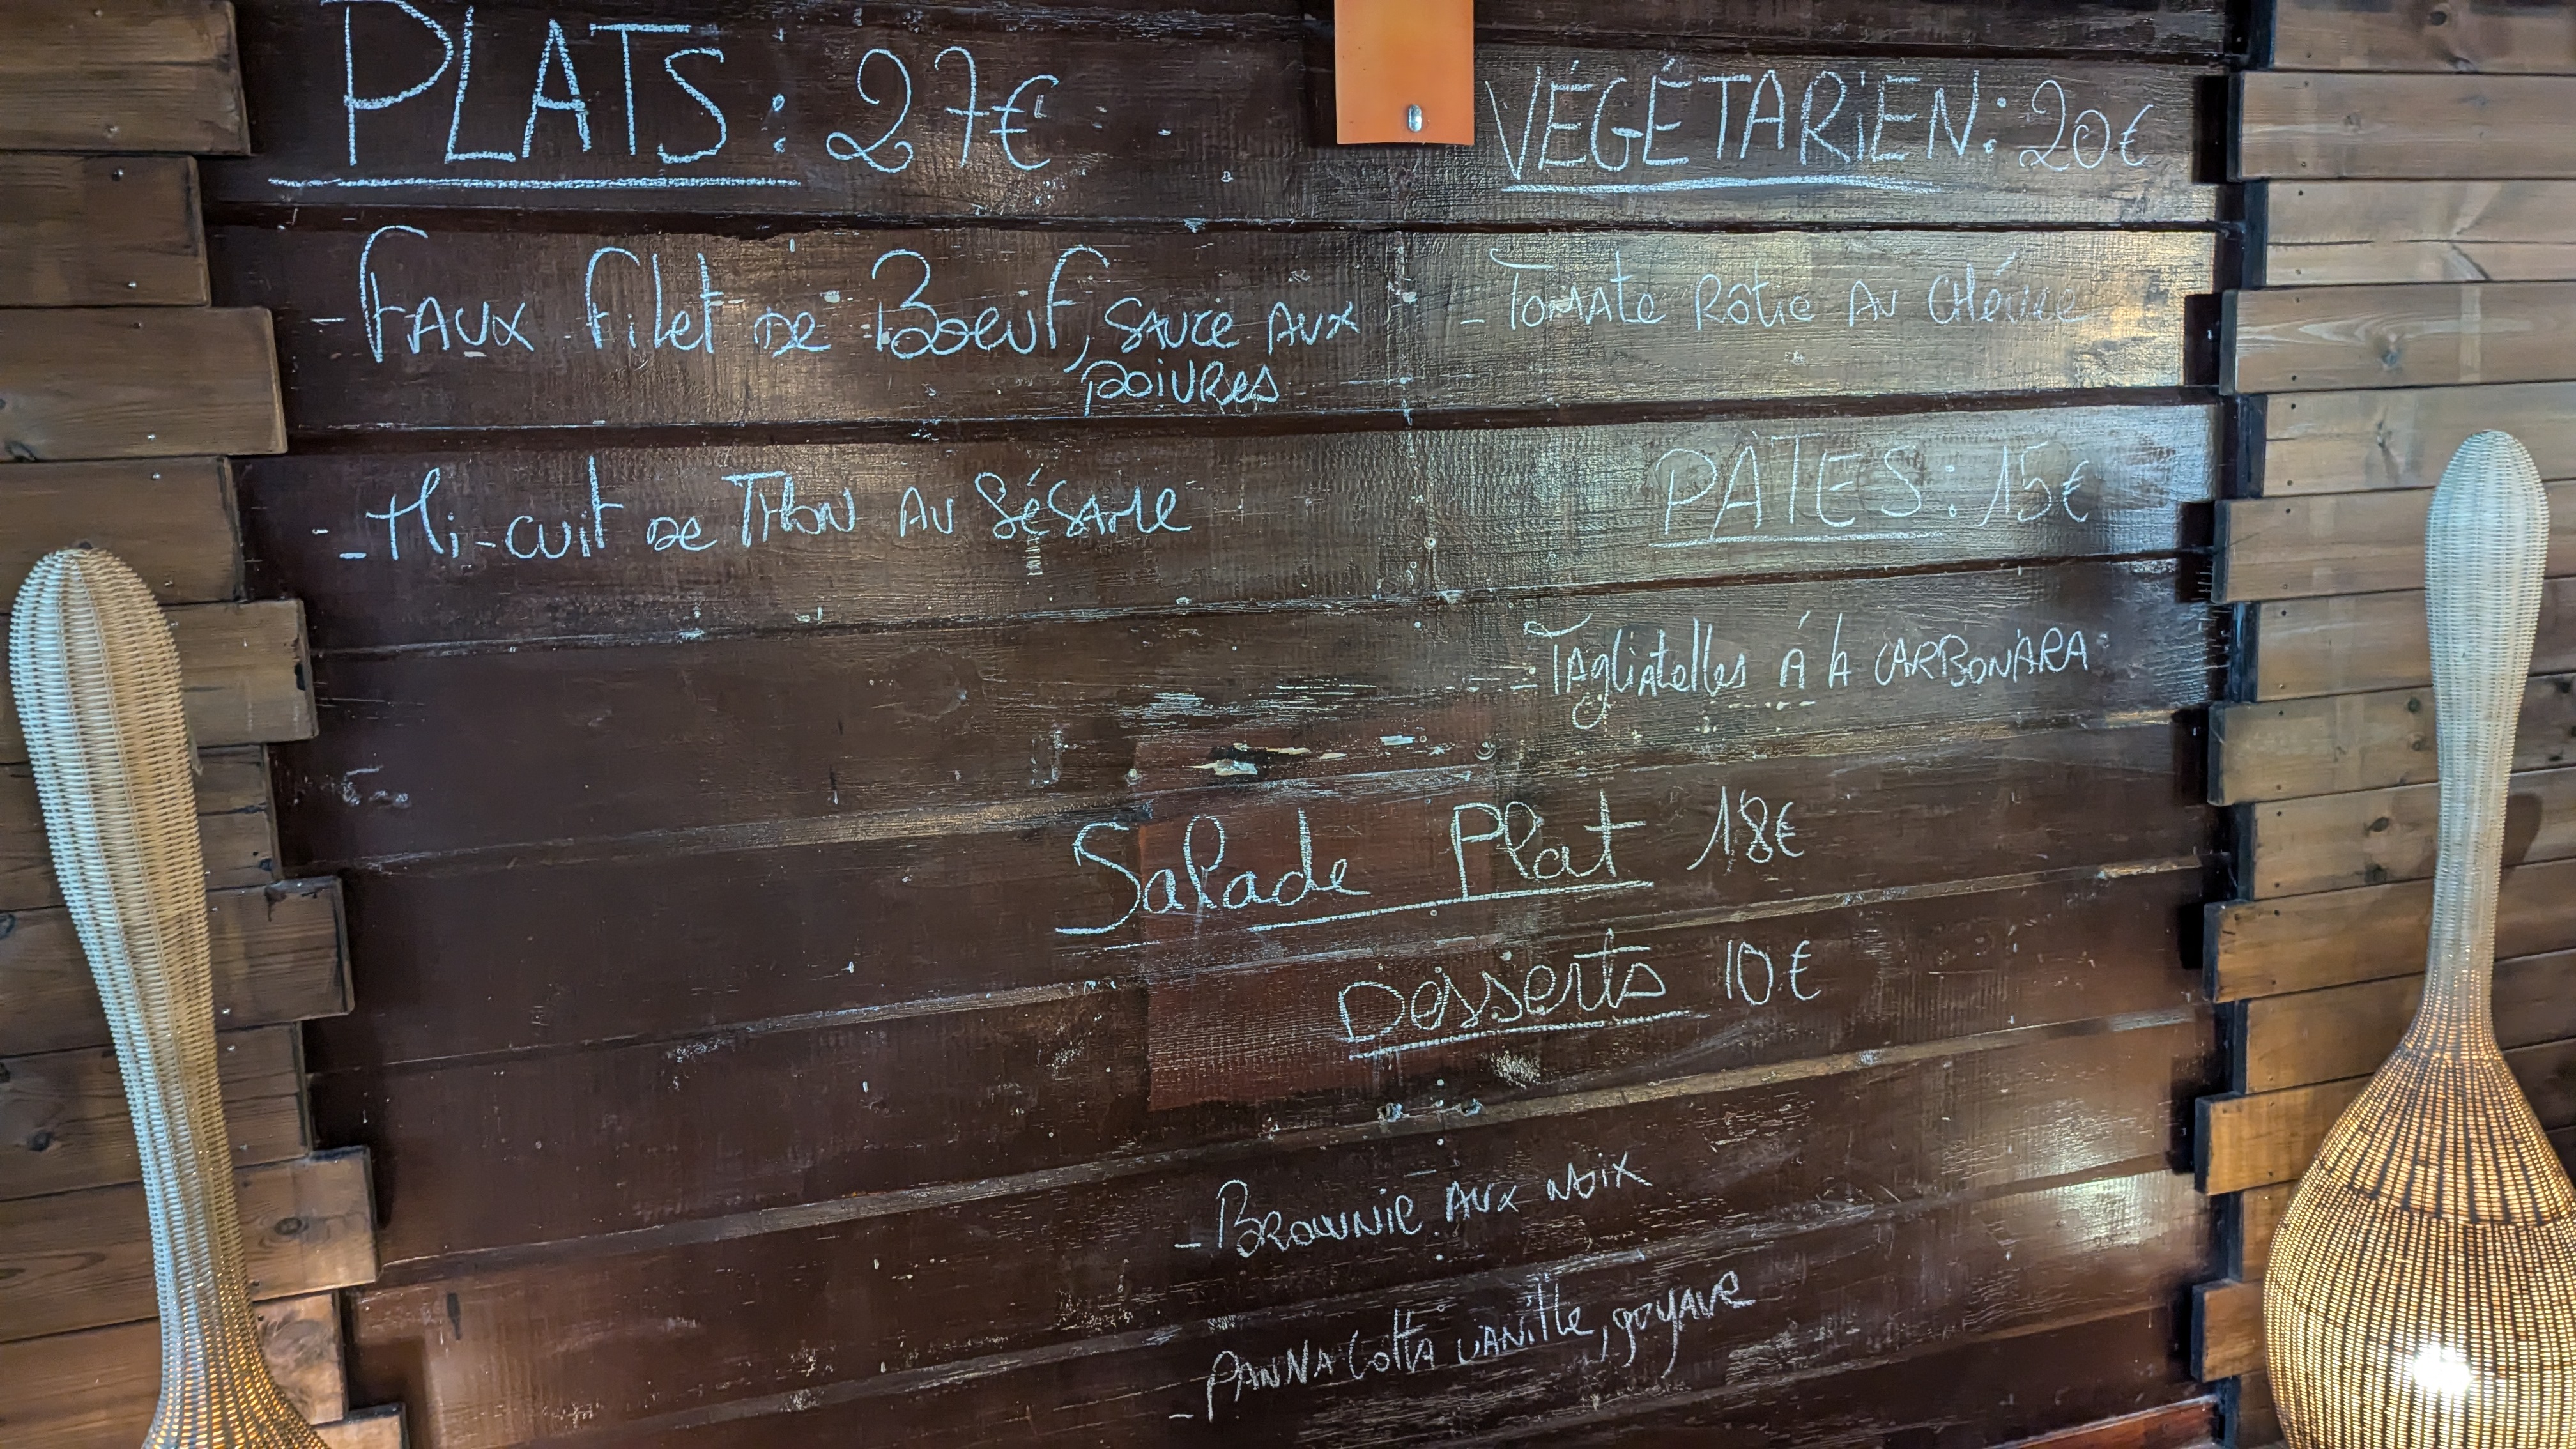 PLATS: 27€
- Faux filet de Boeuf, sauce aux
poivres
- Mi-cuit de Thon au Sésame
VÉGÉTARIEN: 20€
- Tomate Rôtie au Chèvre
PÂTES: 15€
- Tagliatelles à la CARBONARA
Salade Plat 18€
Desserts 10€
- Brownie aux noix
- Panna Cotta vanille, goyave